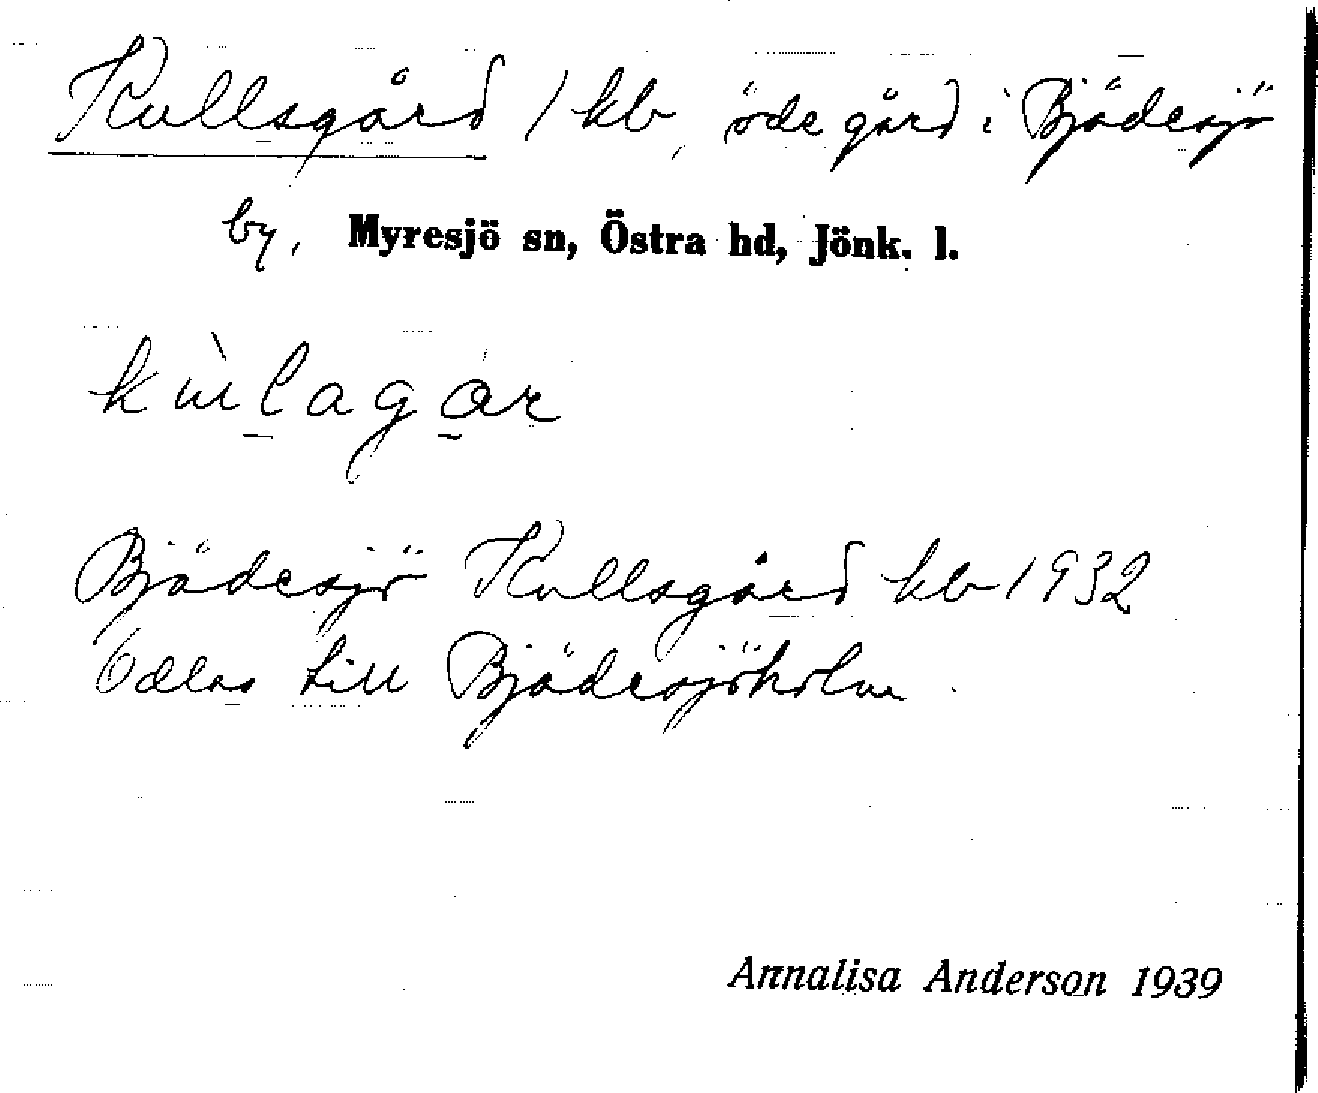 Kullsgård / kb, öde gård i Bjädesjö
by, Myresjö sn, Östra hd, Jönk. l.
Bjädesjö Kullsgård kb 1932
Odlas till Bjädesjöholm.
Annalisa Anderson 1939